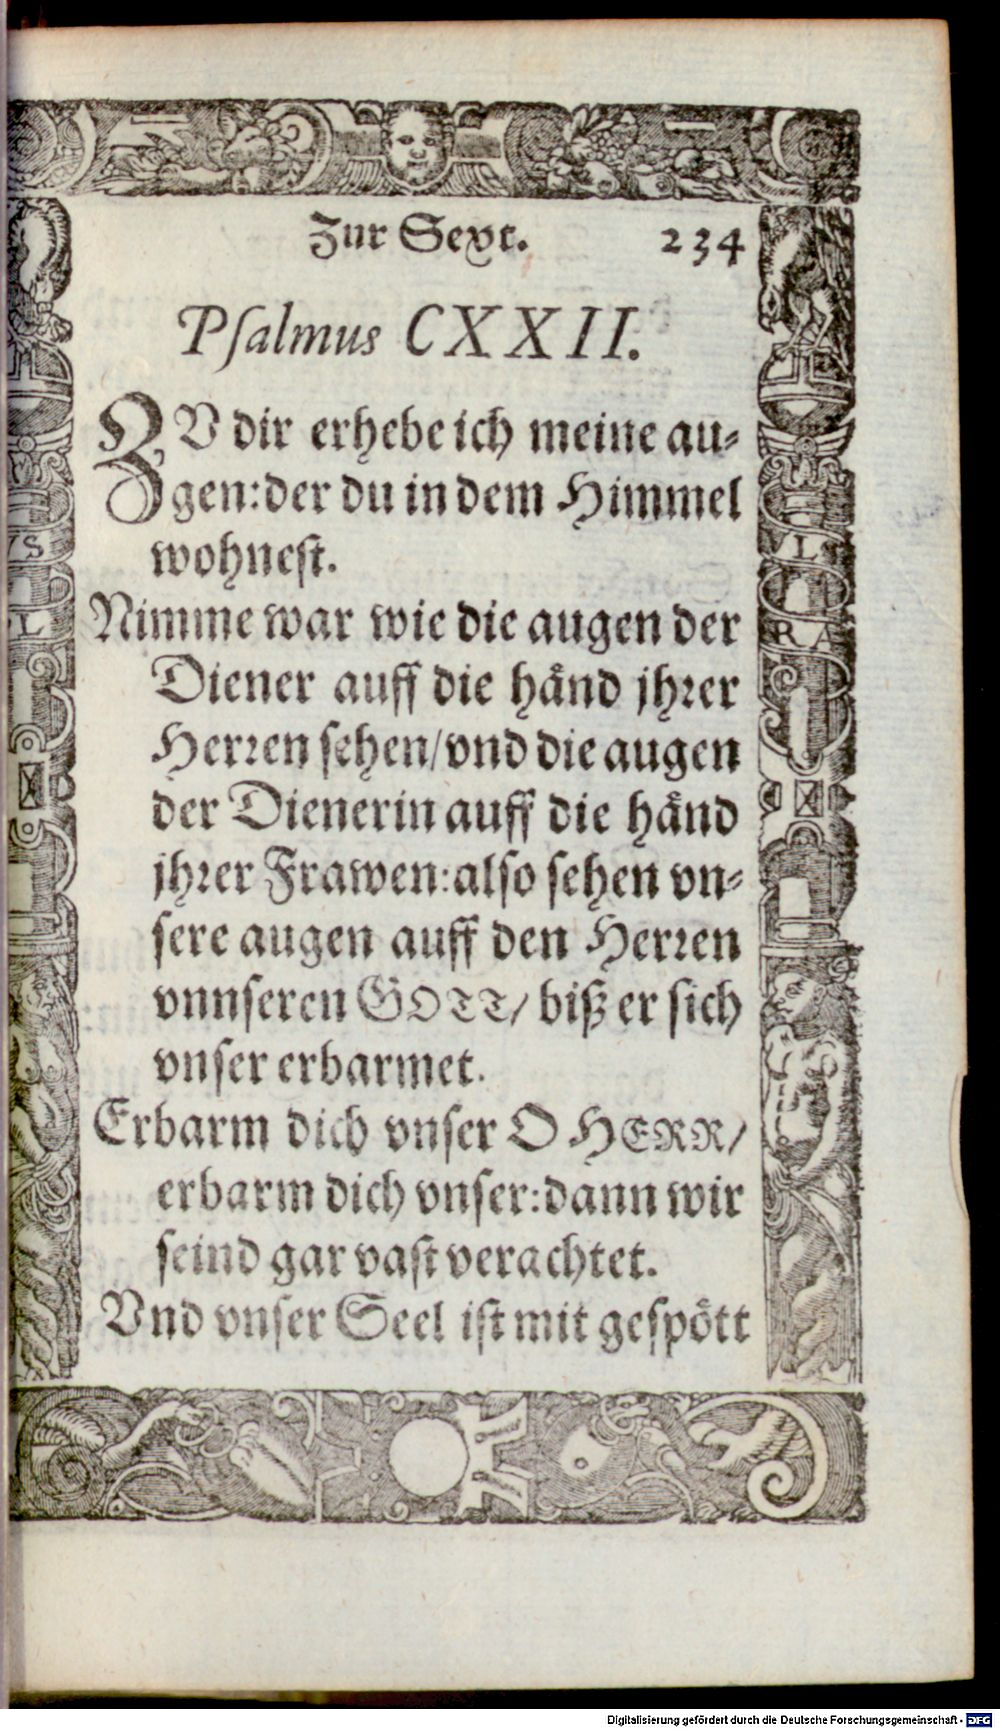 Zur Sext. 234
Psalmus CXXII.
ZV dir erhebe ich meine au-
gen: der du in dem Himmel
wohnest.
Nimme war wie die augen der
Diener auff die händ jhrer
Herren sehen/ vnd die augen
der Dienerin auff die händ
jhrer Frawen: also sehen vn-
sere augen auff den Herren
vnnseren GOTT/ biß er sich
vnser erbarmet.
Erbarm dich vnser O HERR/
erbarm dich vnser: dann wir
seind gar vast verachtet.
Vnd vnser Seel ist mit gespött
VS
L
L
RA
Digitalisierung gefördert durch die Deutsche Forschungsgemeinschaft - DFG